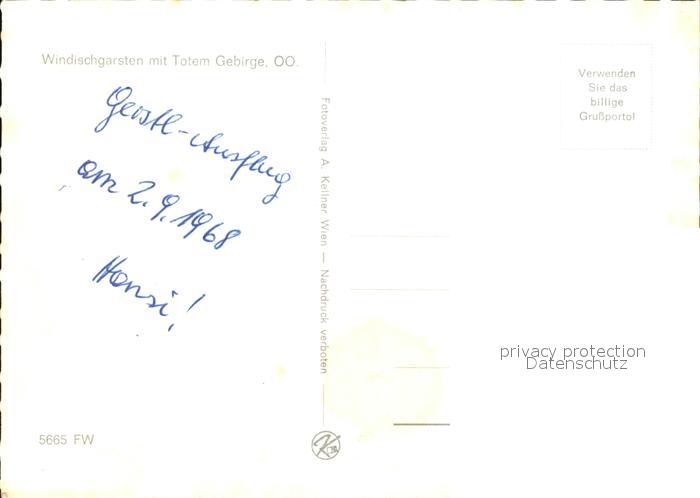 Windischgarsten mit Totem Gebirge, OÖ.
Gerstl-Ausflug
am 2.9.1968
Hansi!
5665 FW
Fotoverlag A. Kellner Wien — Nachdruck verboten
Verwenden
Sie das
billige
Grußporto!
privacy protection
Datenschutz